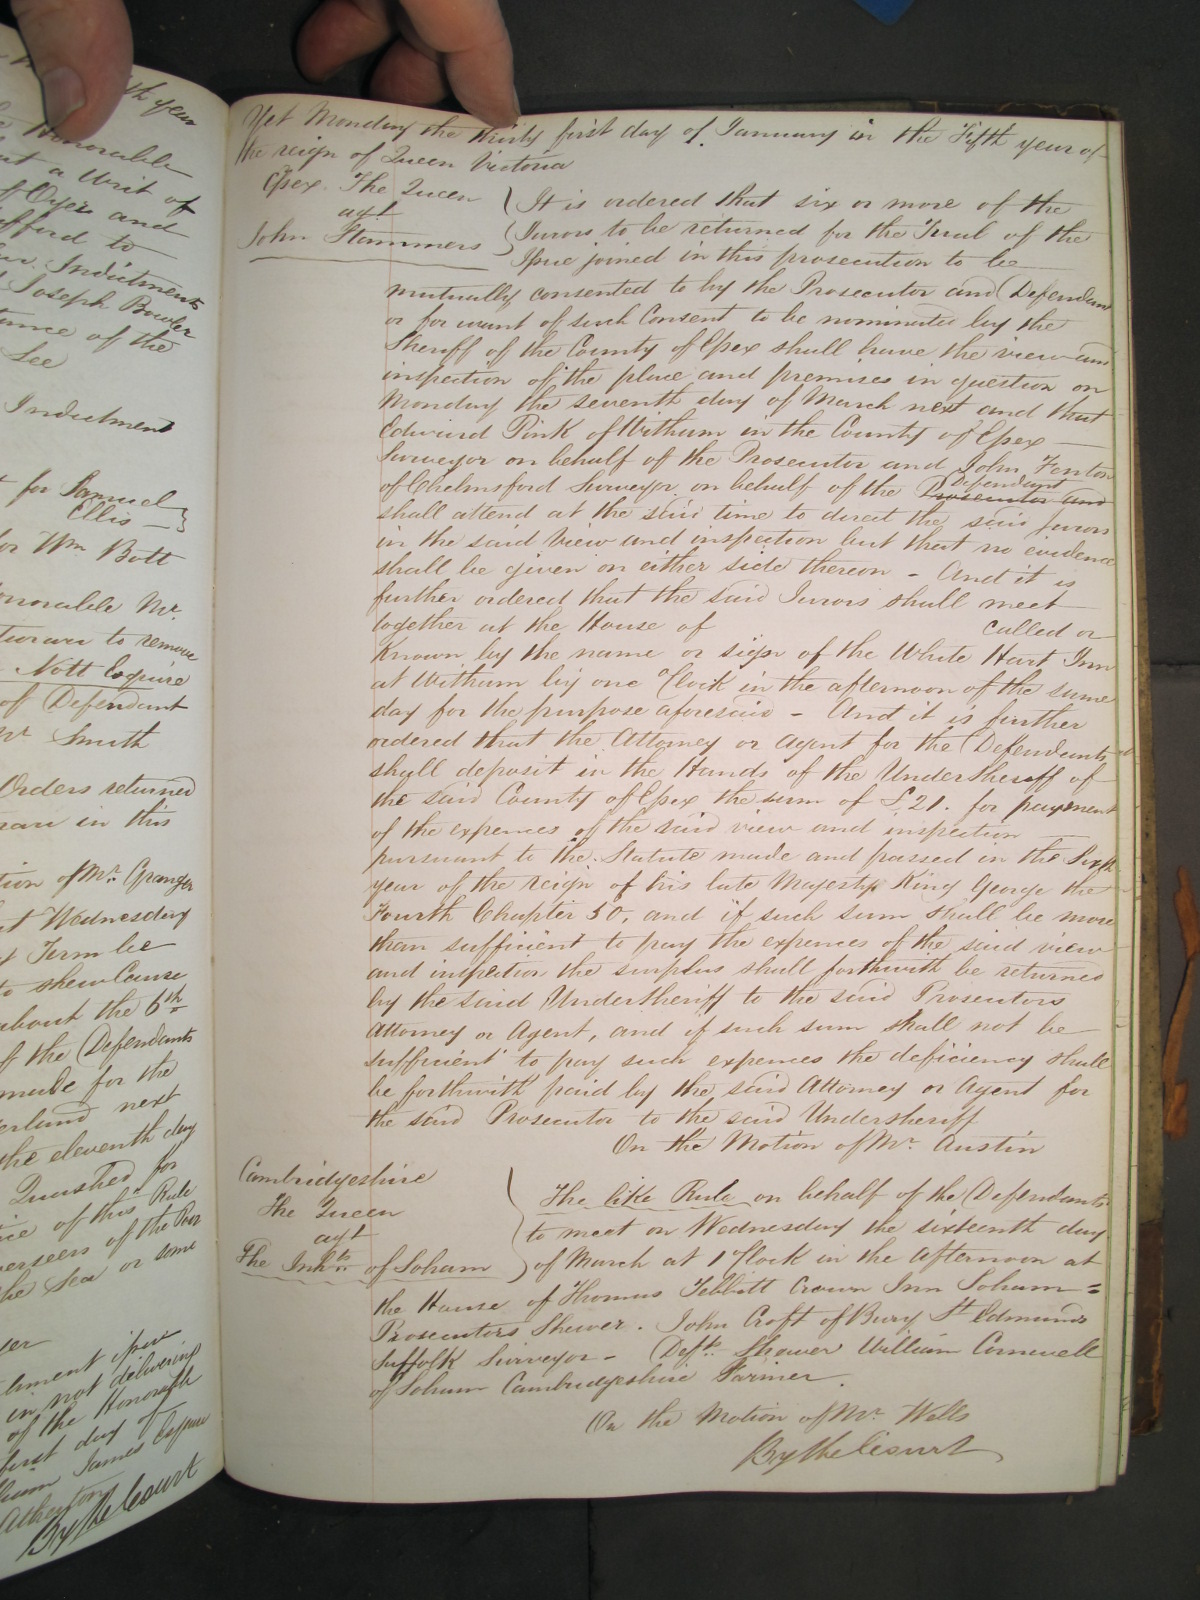 th year
Honorable
a Writ of
of Oyer and
afford to
Indictments
Joseph Bowler
tance of the
See
Indictment
for Samuel
Ellis
for Wm Bott
onorable Mr.
tiorari to remove
Nott Esquire
of Defendant
Mr Smith
Orders returned
rari in this
tion of Mr. Granger
Wednesday
Term be
to shew Cause
about the 6th
of the Defendants
made for the
erland next
the eleventh day
Quashed for
ice of this Rule
verseers of the Poor
the Sea or some
in not delivering
of the Honorable
first day of
James Esquire
By the Court
Yet Monday the thirty first day of January in the Fifth year of
the reign of Queen Victoria
Essex The Queen
agt
John Stammers
It is ordered that six or more of the
Jurors to be returned for the Trial of the
Issue joined in this prosecution to be
mutually consented to by the Prosecutor and Defendant
or for want of such Consent to be nominated by the
Sheriff of the County of Essex shall have the view and
inspection of the place and premises in question on
Monday the seventh day of March next and that
Edward Pink of Witham in the County of Essex
Surveyor on behalf of the Prosecutor and John Fenton
of Chelmsford Surveyor on behalf of the Defendant Prosecutor and
shall attend at the said time to direct the said Jurors
in the said View and inspection but that no evidence
shall be given on either side thereon - And it is
further ordered that the said Jurors shall meet
together at the House of called or
known by the name or sign of the White Hart Inn
at Witham by one oClock in the afternoon of the same
day for the purpose aforesaid - And it is further
ordered that the Attorney or Agent for the Defendants
shall deposit in the Hands of the UnderSheriff of
the said County of Essex the sum of £21. for payment
of the expences of the said view and inspection
pursuant to the Statute made and passed in the Sixth
year of the reign of his late Majesty King George the
Fourth Chapter 50, and if such sum shall be more
than sufficient to pay the expences of the said view
and inspection the surplus shall forthwith be returned
by the said Undersheriff to the said Prosecutors
Attorney or Agent, and if such sum shall not be
sufficient to pay such expences the deficiency shall
be forthwith paid by the said Attorney or Agent for
the said Prosecutor to the said Undersheriff
On the Motion of Mr. Austin
Cambridgeshire
The Queen
agt
The Inhts of Soham
The like Rule on behalf of the Defendants
to meet on Wednesday the sixteenth day
of March at 1 oClock in the afternoon at
the House of Thomas Tebbitt Crown Inn Soham =
Prosecutors Shewer. John Croft of Bury St Edmunds
Suffolk Surveyor - Defts. Shewer William Cornwell
of Soham Cambridgeshire Farmer.
On the Motion of Mr. Wells
By the Court